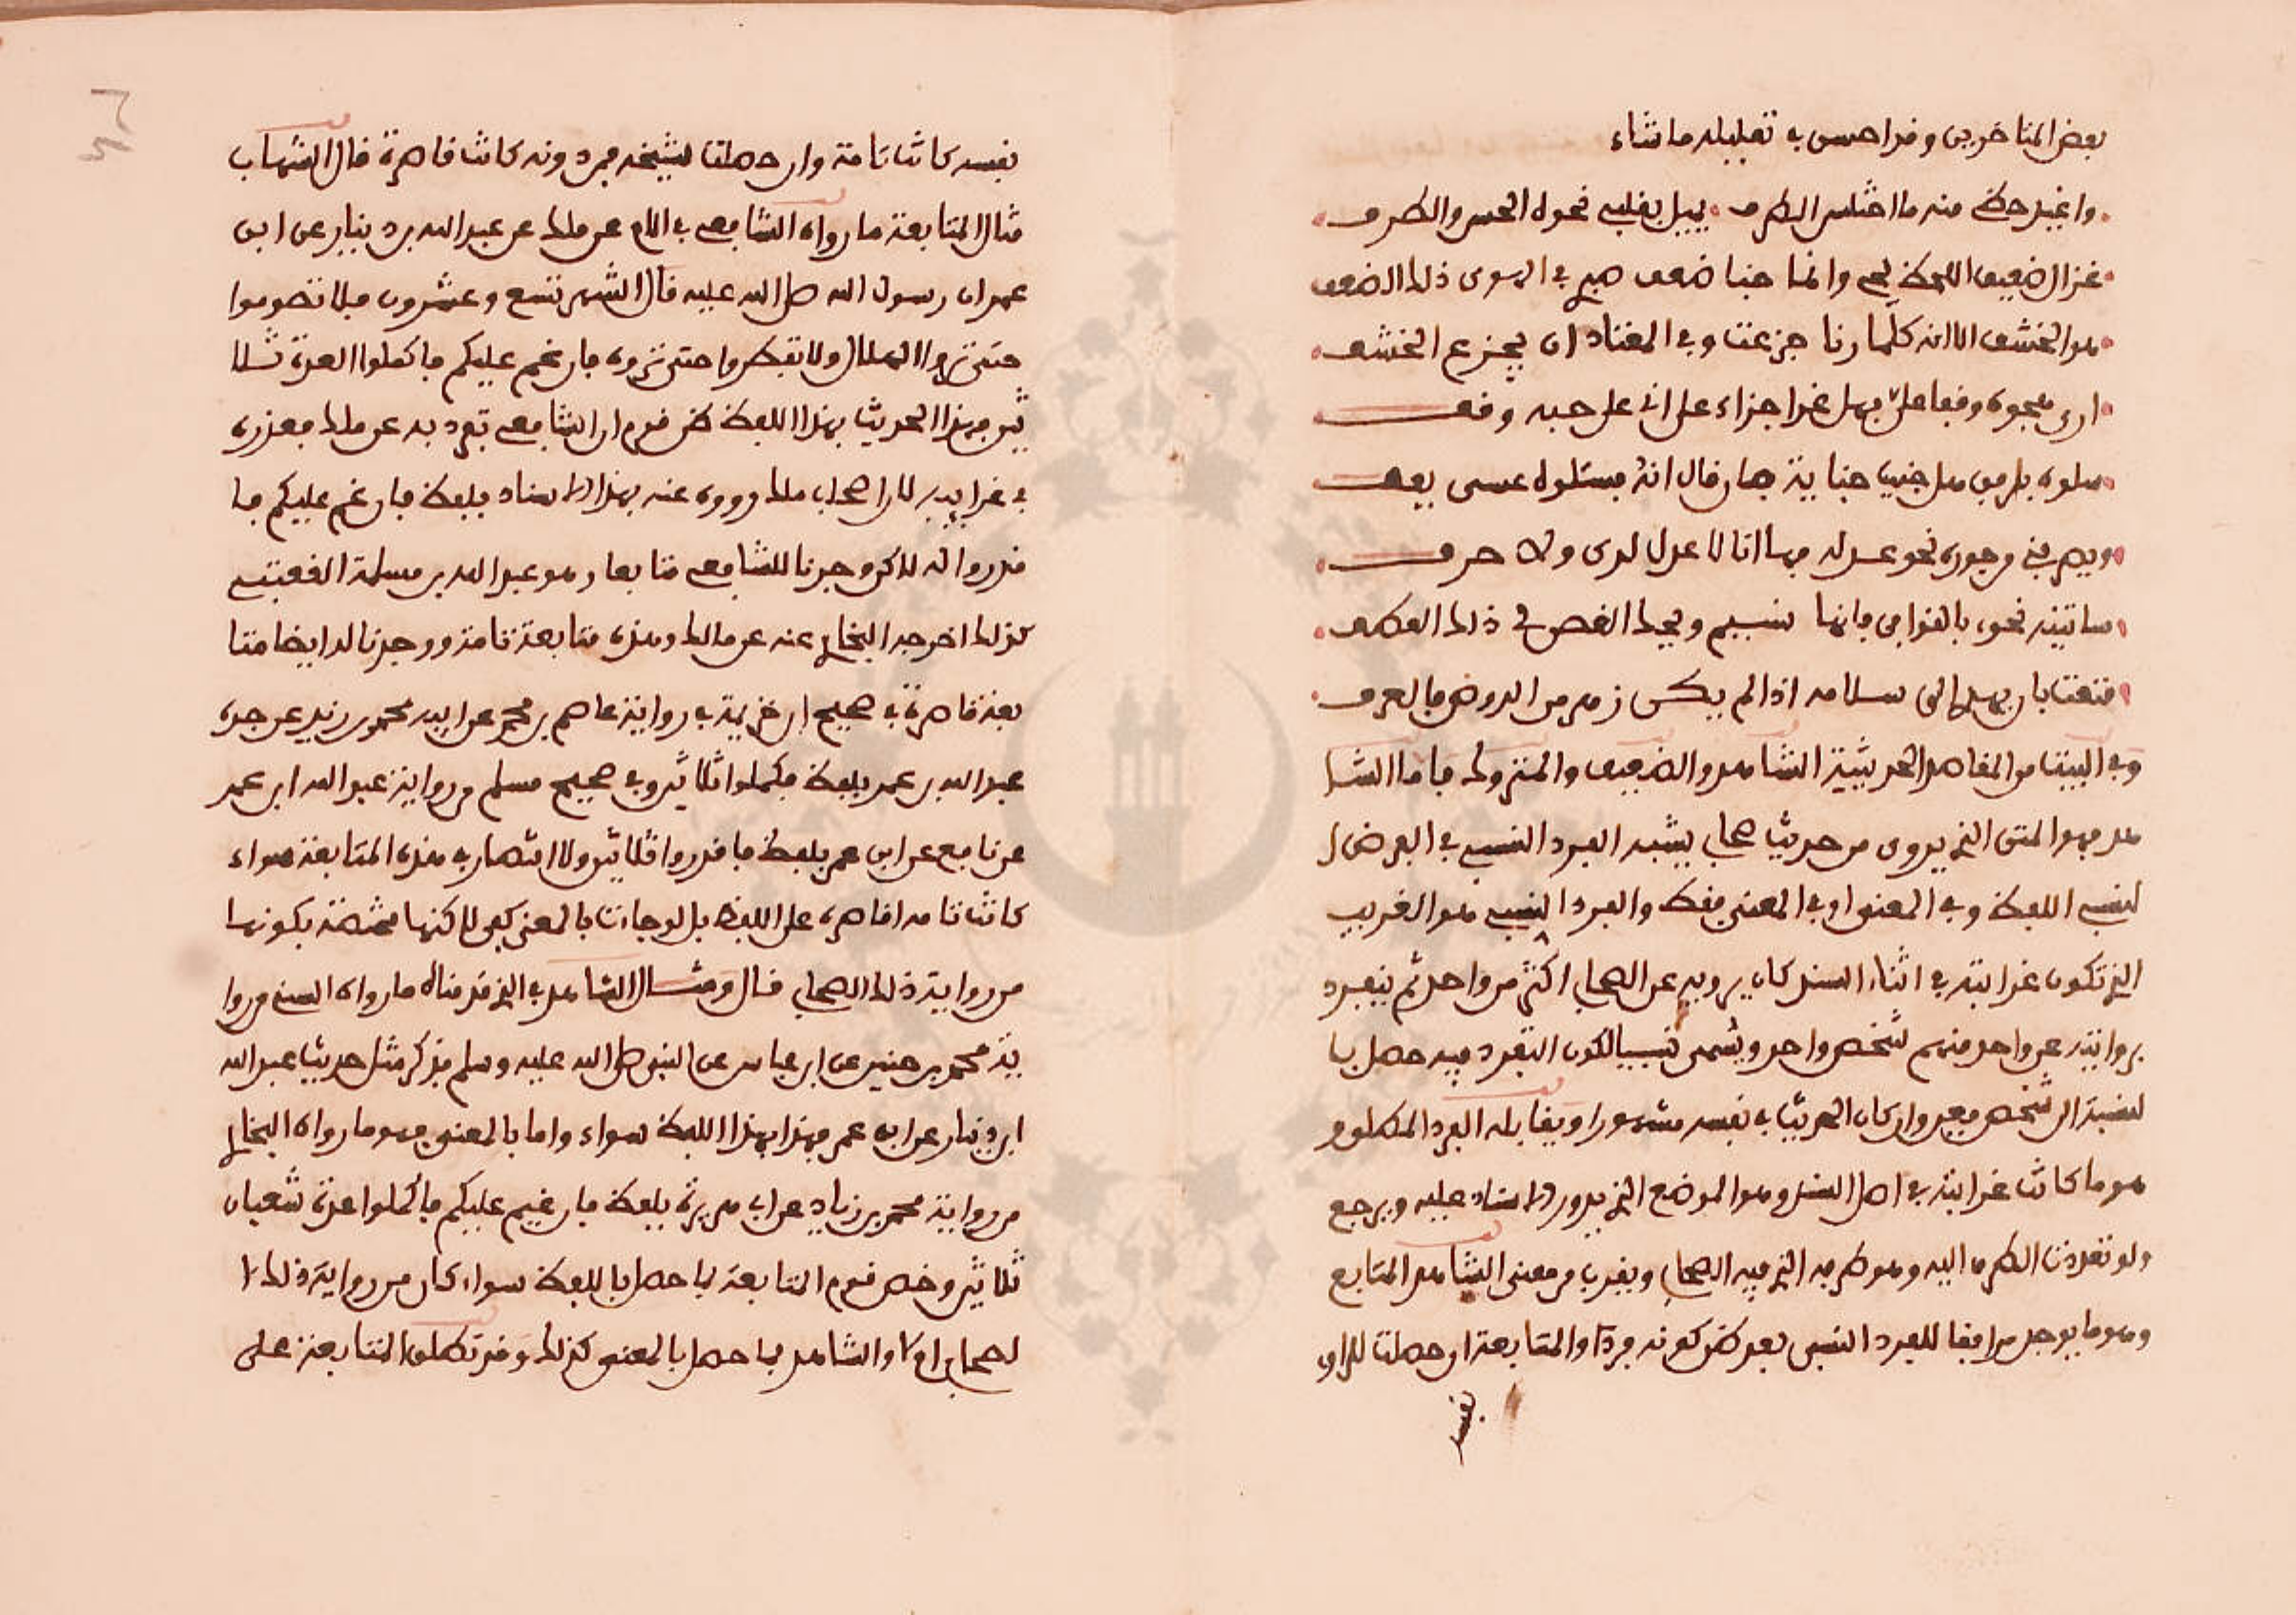 بعض المتاخرين وقد احسن في تعليله ما شاء
واغيد حظي منه ما اختلس الطرف يميل بقلبي نحوه الحسن والظرف
غزال ضعيف اللحظ وانما جنا ضعف في الهوى ذلك الضعف
هو الخشف الا انه كلما رنا جزعت وفي المعتاد ان يجزع الخشف
ارى وقفا علي فهل غدا جزاء على اني على حبه وقف
سلوه بلا من هل جنيت جناية فان قال انه يسئلوه عسى يعف
ويصرفني وجورى نحو عدله فها انا لا عدل لدي ولا صرف
ساتيه نحوه بالقوافي فانها نسيم ويحيى الغصن في ذلك العطف
قنعت بان يهدى الى سلامه اذا لم يكن زهر من الروض فالعرف
وفي البيت من المقاصد الحديثية الشاهد والضعيف والمتروك فاما الشا
هد فهو المتن الذي يروى من حديث صحابي يشبه الفرد النسبي في الفرض ا
لنسبي اللفظ وفي المعنى او في المعنى فقط والفرد النسبي هو الغريب
الذي تكون غرابته في اثناء السند كان يرويه عن الصحابي اكثر من واحد ثم ينفرد
بروايته عن واحد منهم شخص واحد ويسمى نسبيا لكون التفرد فيه حصل با
لنسبة الى شخص معين وان كان الحديث في نفسه مشهورا ويقابله الفرد المطلق و
هو ما كانت غرابته في اصل السند وهو الموضع الذي يدور الاسناد عليه ويرجع
ولو تعددت الطرق اليه وهو طرفه الذي فيه الصحابي ويقرب من معنى الشاهد المتابع
وهو ما يوجد موافقا للفرد النسبي بعد ظن كونه فردا والمتابعة ان حصلت للراوي
نفسه
نفسه كانت تامة وان حصلت لشيخه فمن دونه كانت قاصرة قال الشهاب
مثال المتابعة ما رواه الشافعي في الام عن ملك عن عبد الله بن دينار عن ابن
عمر ان رسول الله صلى الله عليه قال الشهر تسع وعشرون فلا تصوموا
حتى تروا الهلال ولا تفطروا حتى تروه فان غم عليكم فاكملوا العدة ثلا
ثين فهذا الحديث بهذا اللفظ ظن قوم ان الشافعي تفرد به عن ملك فعدوه
في غرايبه لان اصحاب ملك رووه عنه بهذا الاسناد بلفظ فان غم عليكم فا
قدروا له لاكن وجدنا للشافعي متابعا وهو عبد الله بن مسلمة القعنبي
كذلك اخرجه البخاري عنه عن مالك وهذه متابعة تامة ووجدنا له ايضا متا
بعة قاصرة في صحيح ابن خزيمة في رواية عاصم بن محمد عن ابيه محمد بن زيد عن جده
عبد الله بن عمر بلفظ فكملوا ثلاثين وفي صحيح مسلم من رواية عبد الله ابن عمر
عن نافع عن ابن عمر بلفظ فاقدروا ثلاثين ولا اقتصار في هذه المتابعة سواء
كانت تامة او قاصرة على اللفظ بل لو جاءت بالمعنى كفى لاكنها مختصة بكونها
من رواية ذلك الصحابي قال ومثال الشاهد في الذي قدمناه ما رواه النسئي من روا
ية محمد بن حنين عن ابن عباس عن النبي صلى الله عليه وسلم فذكر مثل حديث عبد الله
ابن دينار عن ابن عمر فهذا بهذا اللفظ سواء واما بالمعنى فهو ما رواه البخاري
من رواية محمد بن زياد عن ابي هريرة بلفظ فان غيم عليكم فاكملوا عدة شعبان
ثلاثين وخص قوم المتابعة بما حصل باللفظ سواء كان من رواية ذلك ا
لصحابي ام لا والشاهد بما حصل بالمعنى كذلك وقد تطلق المتابعة على